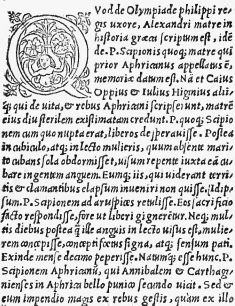 Quod de Olympiade philippi re-
gis uxore, Alexandri matre in
historia græca scriptum est, idẽ
de P. Scipionis quoq; matre qui
prior Aphricanus appellatus ẽ,
memoriæ datum est. Nã et Caius
Oppius & Iulius Higinius alii-
q; qui de uita, & rebus Aphricani scripserunt, matrẽ
eius diu sterilem existimatam credunt. P. quoq; Scipio
nem cum quo nupta erat, liberos desperauisse. Postea
in cubiculo, atq; in lecto mulieris, quum absente mari-
to cubans sola obdormisset, uisum repente iuxta eã cu-
bare ingentem anguem. Eumq; iis, qui uiderant territi-
tis & clamantibus elapsum inueniri non quisse. Id ip-
sum. P. Scipionem ad aruspices retulisse. Eos sacrificio
facto respondisse, fore ut liberi gignerẽtur. Neq; mul-
tis diebus postea q̃ ille anguis in lecto uisus est, mulie-
rem concepisse, conceptiq; fœtus signa, atq; sensum pati.
Exinde mense decimo peperisse. Natumq; esse hunc. P.
Scipionem Aphricanũ, qui Annibalem & Carthagi-
nienses in Aphrica bello punico secundo uicit. Sed et
eum impendio magis ex rebus gestis, quam ex illo